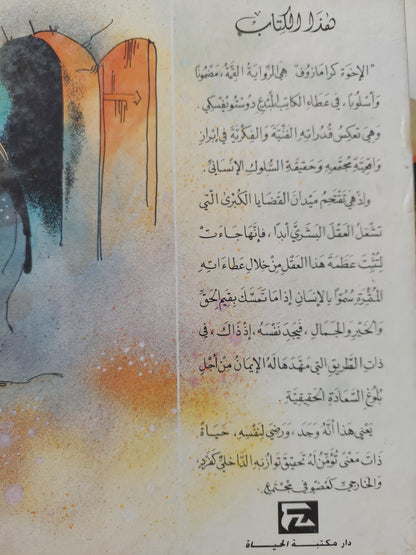 هذا الكِتاب
"الإخوَة كرامازوف" هي الرّواية القِمّة، مَضمُونًا
وَأسلُوبا، في عَطاء الكاتب المُبدِع دوستويفسكي.
وَهيَ تعكِسُ قُدراتِهِ الفَنّيَة وَالفِكريَّة في إبراز
وَاقعيَّة مُجتمعِهِ وَحَقيقَةِ السُلوكِ الإنسَانيّ.
وَإذ هِيَ تَقتَحِمُ مَيدَانَ القَضَايا الكُبرىٰ الّتي
تشغلُ العَقلَ البَشَريَّ أبدًا، فإنَّهَا جَاءَت
لِتُثبِتَ عَظمَةَ هَذا العَقلِ مِن خِلالِ عَطاءَاتِهِ
المُقَرِّبَةِ سُمُوًا بِالإنسَانِ إذا مَا تَمَسَّكَ بِقِيَمِ الحَقّ
وَالخَيرِ وَالجَمَالِ، فيَجدَ نَفسَهُ، إذ ذَاكَ، في
ذاتِ الطَّريقِ الّتي مَهَّدَهَا لَهُ الإيمَانُ مِن أجلِ
بُلُوغِ السَّعَادَةِ الحَقيقيَّةِ.
يَعني هَذا أنَّهُ وَجَدَ، وَرَضيَ لِنَفسِهِ، حَيَاةً
ذَاتَ مَعنًى تُؤَمِّنُ لَهُ تَحقيقَ تَوازُنِهِ الدَّاخليّ كَفَردٍ،
وَالخَارجيّ كَعُضوٍ في مُجتَمعٍ.
دار مكتبة الحياة